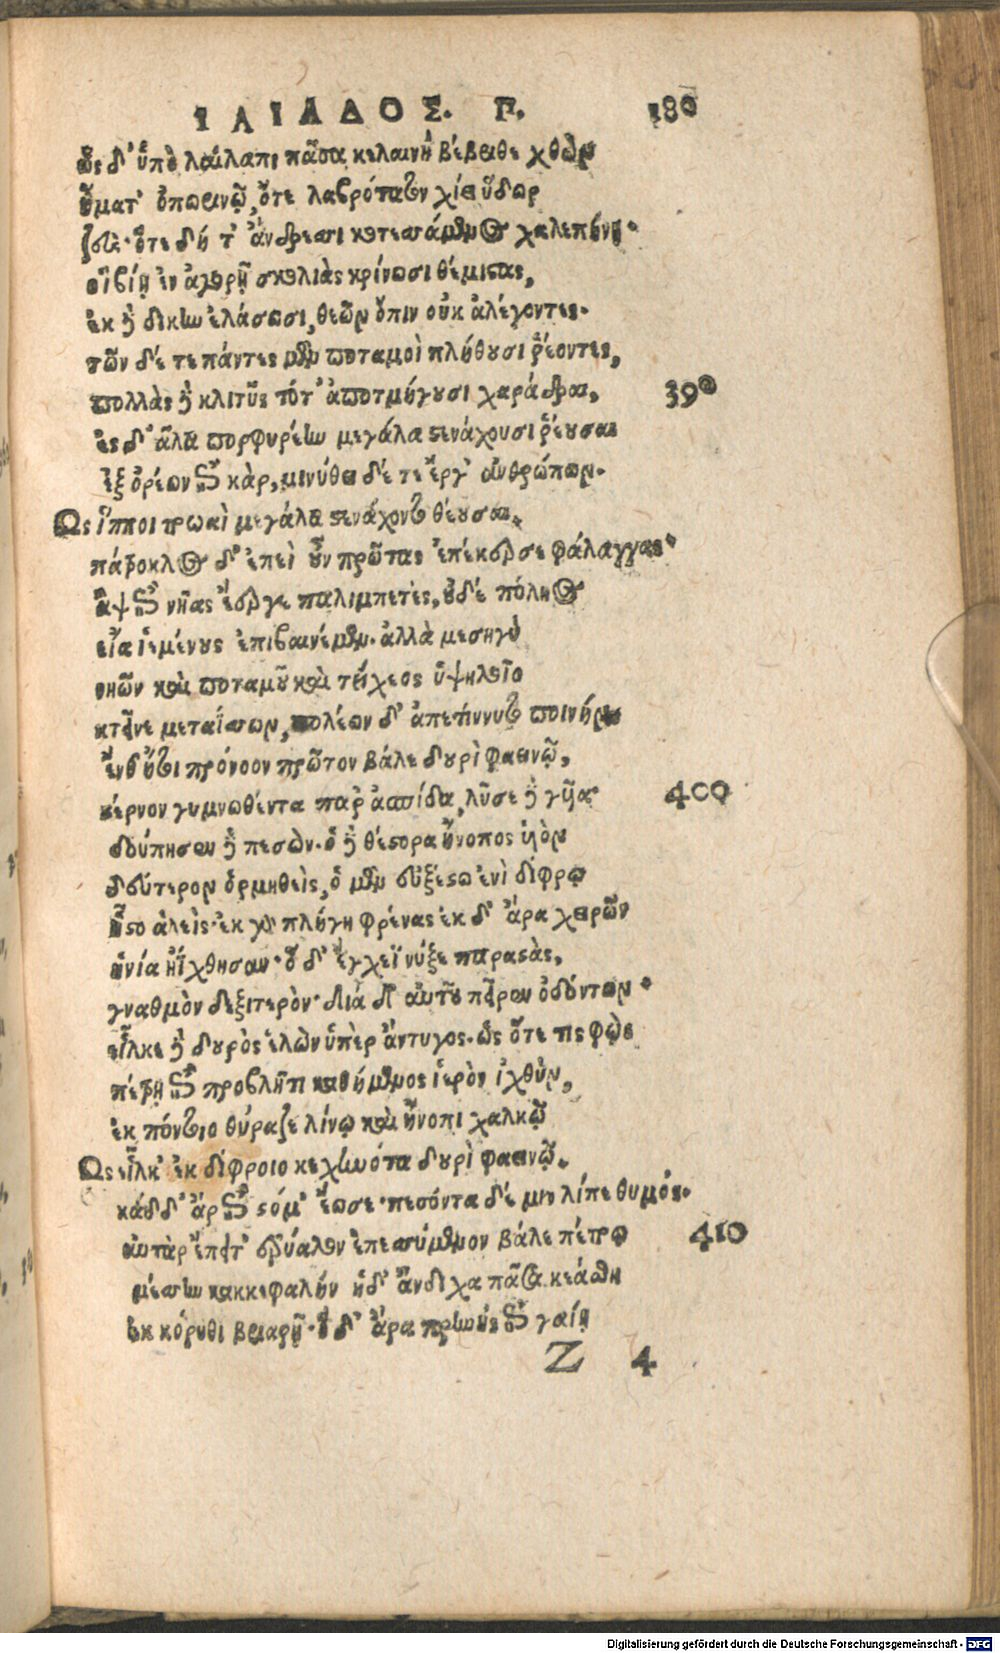 ΙΛΙΑΔΟΣ. Π. 180
ὡς δ' ὑπὸ λαίλαπι πᾶσα κελαινὴ βέβριθε χθὼν
ἤματ' ὀπωρινῷ, ὅτε λαβρότατον χέει ὕδωρ
ζεύς· ὅτε δή τ' ἄνδρεσσι κοτεσσάμενος χαλεπήνῃ·
οἳ βίῃ ἐν ἀγορῇ σκολιὰς κρίνωσι θέμιστας,
ἐκ δὲ δίκην ἐλάσωσι, θεῶν ὄπιν οὐκ ἀλέγοντες.
τῶν δέ τε πάντες μὲν ποταμοὶ πλήθουσι ῥέοντες,
πολλὰς δὲ κλιτῦς τότ' ἀποτμήγουσι χαράδραι, 390
ἐς δ' ἅλα πορφυρέην μεγάλα στενάχουσι ῥέουσαι
ἐξ ὀρέων ἐπὶ κὰρ, μινύθει δέ τε ἔργ' ἀνθρώπων.
Ως ἵπποι τρωαὶ μεγάλα στενάχοντο θέουσαι.
πάτροκλος δ' ἐπεὶ οὖν πρώτας ἐπέκερσε φάλαγγας·
ἂψ ἐπὶ νῆας ἔεργε παλιμπετὲς, οὐδέ πόληος
εἴα ἱεμένους ἐπιβαινέμεν. ἀλλὰ μεσηγὺ
νηῶν καὶ ποταμοῦ καὶ τείχεος ὑψηλοῖο
κτεῖνε μεταΐσσων, πολέων δ' ἀπετίννυτο ποινήν
ἔνθ' ἤτοι πρόνοον πρῶτον βάλε δουρὶ φαεινῷ,
στέρνον γυμνωθέντα παρ' ἀσπίδα, λῦσε δὲ γυῖα· 400
δούπησεν δὲ πεσών. ὁ δὲ θέστορα ἤνοπος υἱὸν
δεύτερον ὁρμηθεὶς, ὁ μὲν εὐξέστῳ ἐνὶ δίφρῳ
ἧστο ἀλείς· ἐκ γὰρ πλήγη φρένας ἐκ δ' ἄρα χειρῶν
ἡνία ἠΐχθησαν· ὁ δ' ἔγχεϊ νύξε παραστὰς,
γναθμὸν δεξιτερὸν· διὰ δ' αὐτοῦ πεῖρεν ὀδόντων·
εἷλκε δὲ δουρὸς ἑλὼν ὑπὲρ ἄντυγος. ὡς ὅτε τις φὼς
πέτρῃ ἐπὶ προβλῆτι καθήμενος ἱερὸν ἰχθὺν,
ἐκ πόντοιο θύραζε λίνῳ καὶ ἤνοπι χαλκῷ
Ως εἷλκ' ἐκ δίφροιο κεχηνότα δουρὶ φαεινῷ.
κάδδ' ἀρ' ἐπὶ στόμ' ἔωσε· πεσόντα δέ μιν λίπε θυμός.
αὐτὰρ ἔπειτ' ἐρύαλον ἐπεσσύμενον βάλε πέτρῳ 410
μέσσην κακκεφαλήν ἡ δ' ἄνδιχα πᾶσα κεάσθη
ἐκ κόρυθι βριαρῇ· ὁ δ' ἄρα πρηνὴς ἐπὶ γαίῃ
Z 4
Digitalisierung gefördert durch die Deutsche Forschungsgemeinschaft - DFG